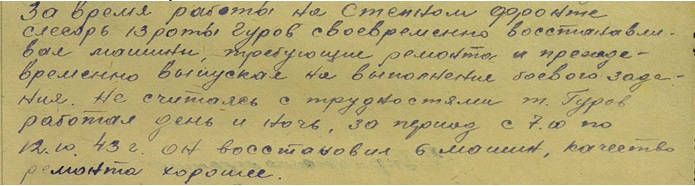 За время работы на Степном фронте
слесарь 13 роты Гуров своевременно восстанавли-
вал машины, требующие ремонта и прежде-
временно выпускал на выполнение боевого зада-
ния. Не считаясь с трудностями т. Гуров
работал день и ночь, за период с 7.10 по
12.10.43 г. он восстановил 6 машин, качество
ремонта хорошее.